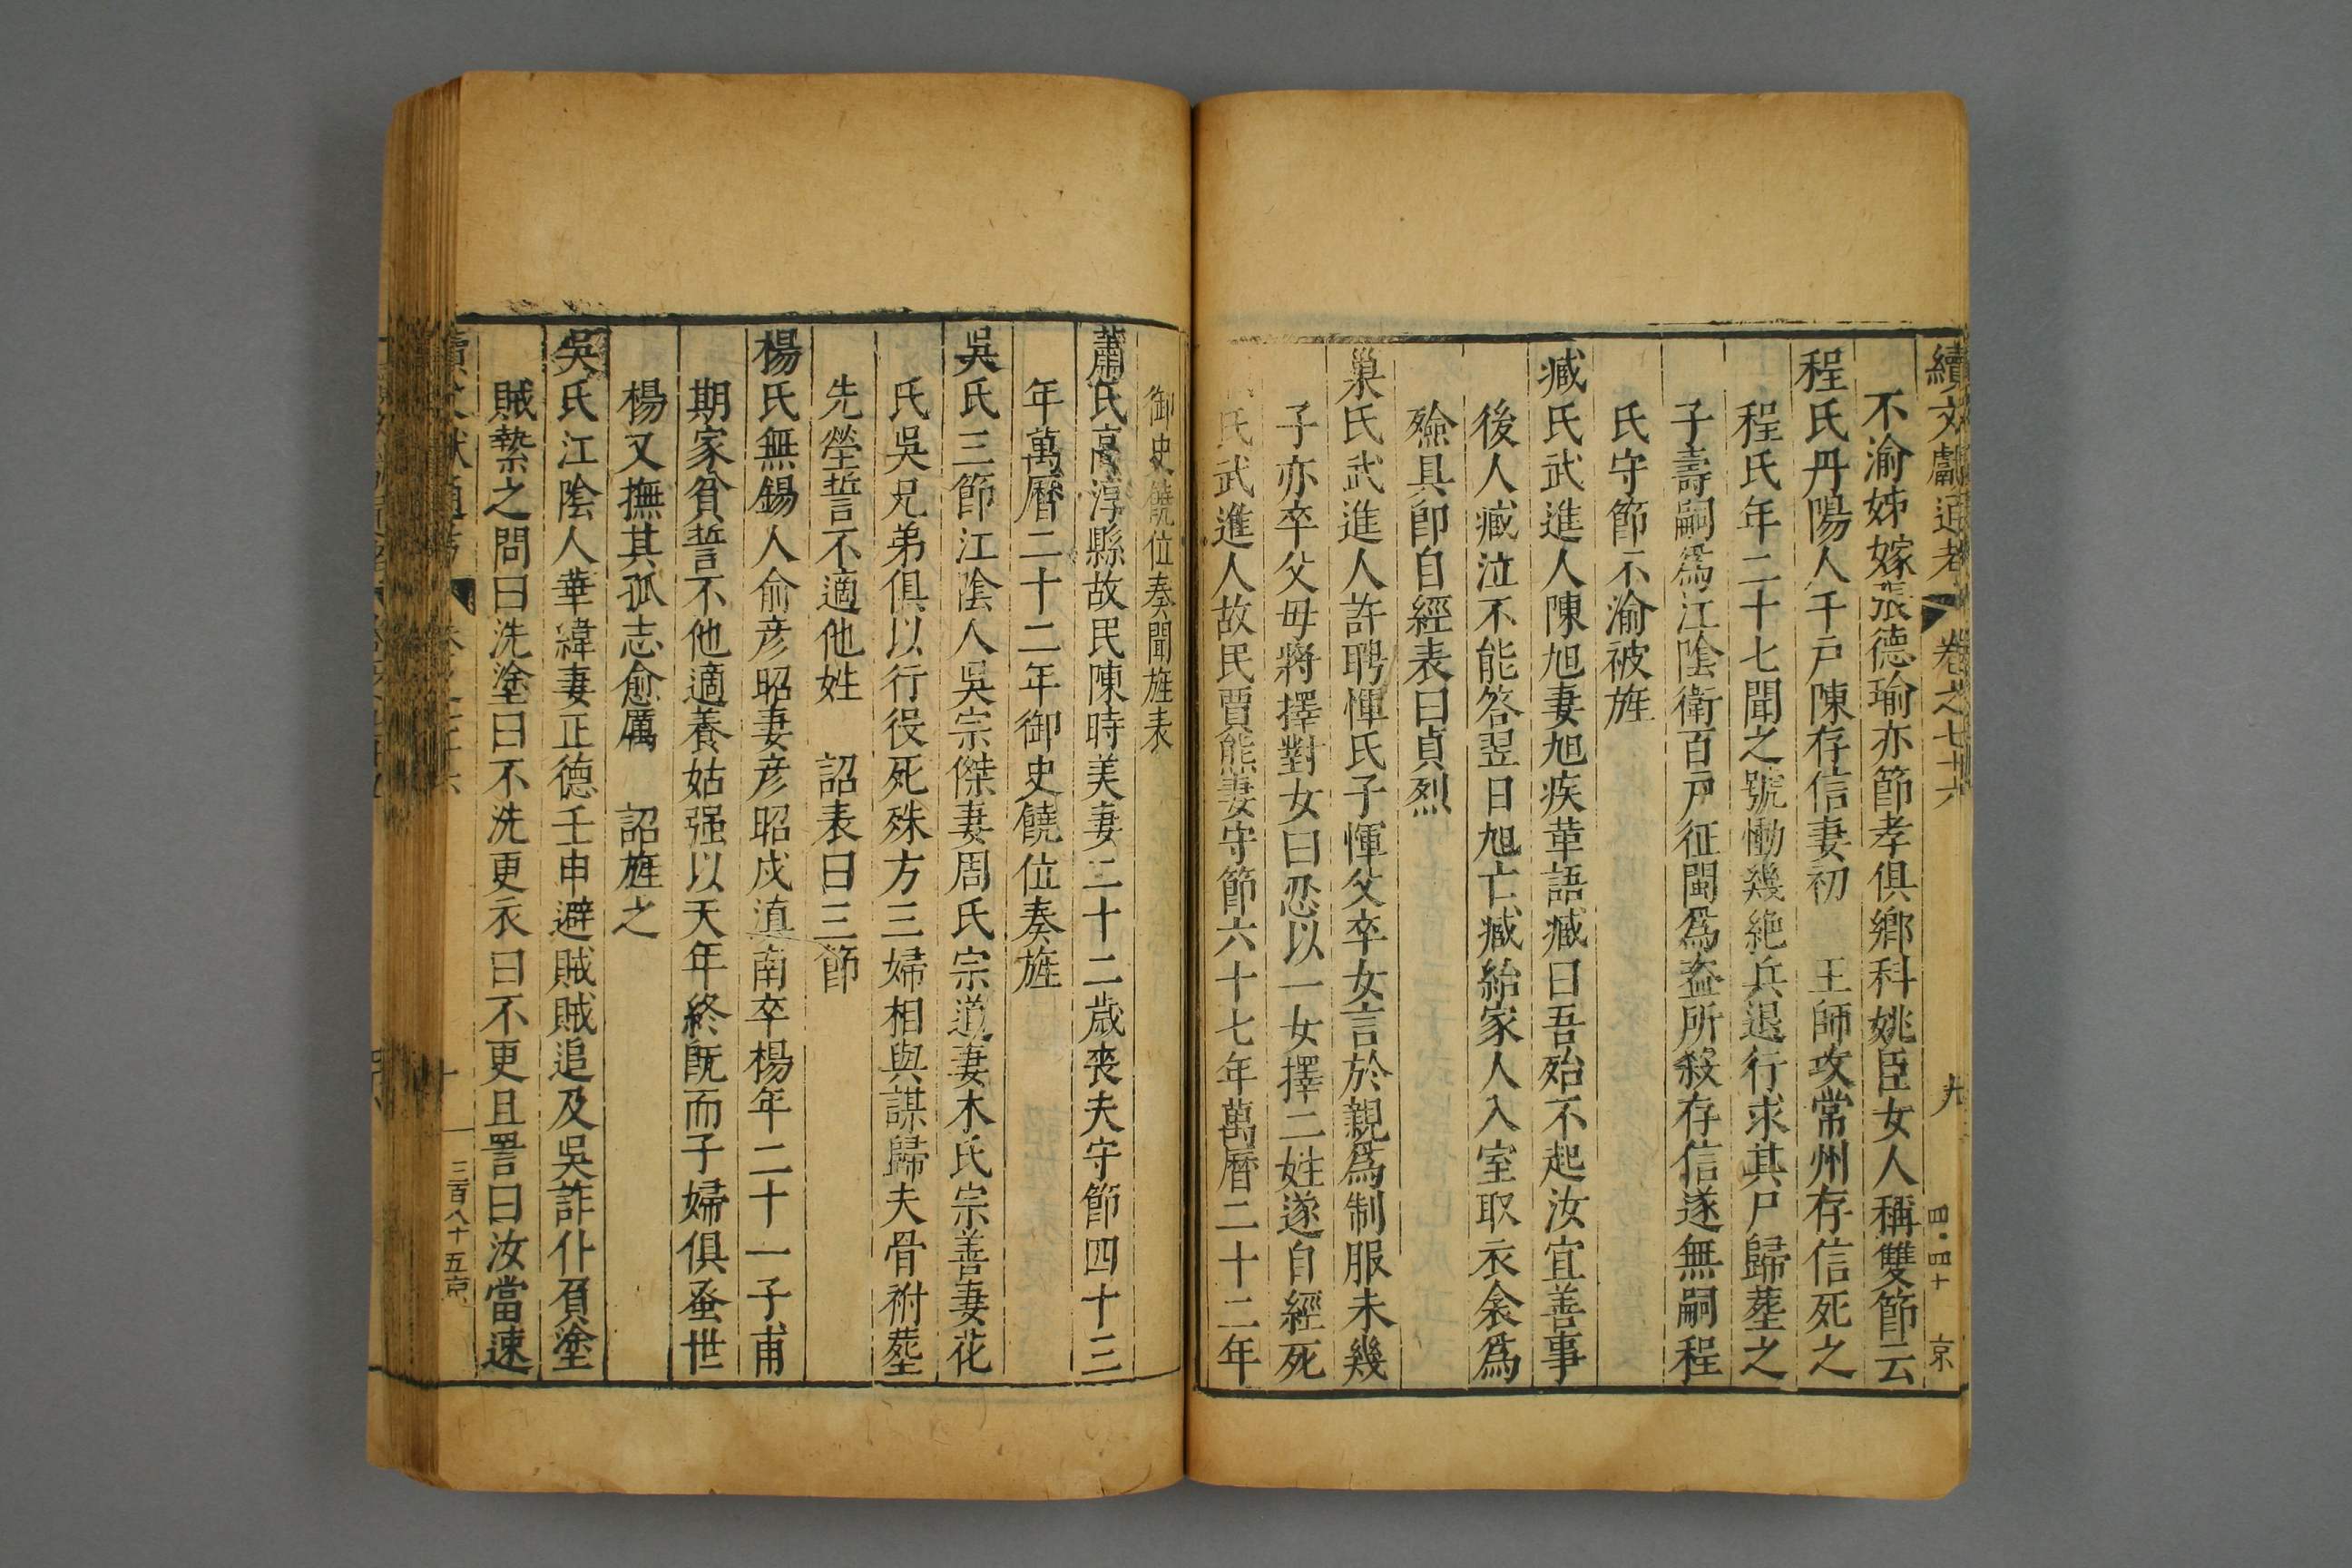 續文獻通考 卷之七十六 九 四·四十 京
不渝姊嫁張德瑜亦節孝俱鄉科姚臣女人稱雙節云
程氏丹陽人千戸陳存信妻初 王師攻常州存信死之
程氏年二十七聞之號慟幾絶兵退行求其尸歸塟之
子壽嗣爲江陰衛百戸征閩爲盗所殺存信遂無嗣程
氏守節不渝被旌
臧氏武進人陳旭妻旭疾革語臧曰吾殆不起汝宜善事
後人臧泣不能答翌日旭亡臧紿家人入室取衣衾爲
殮具卽自經表曰貞烈
巢氏武進人許聘惲氏子惲父卒女言於親爲制服未幾
子亦卒父毋將擇對女曰忍以一女擇二姓遂自經死
氏武進人故民賈能妻守節六十七年萬曆二十二年
御史饒位奏聞旌表
蕭氏高淳縣故民陳時美妻二十二歲丧夫守節四十三
年萬曆二十二年御史饒位奏旌
吳氏三節江陰人吳宗傑妻周氏宗道妻木氏宗善妻花
氏吳兄弟俱以行役死殊方三婦相與謀歸夫骨祔塟
先塋誓不適他姓 詔表曰三節
楊氏無錫人俞彦昭妻彦昭戍滇南卒楊年二十一子甫
期家貧誓不他適養姑强以天年終既而子婦俱蚤世
楊又撫其孤志愈厲 詔旌之
吳氏江陰人華緯妻正德壬申避賊賊追及吳詐仆頁塗
賊縶之問曰洗塗曰不洗更衣曰不更且詈曰汝當速
三百八十五京